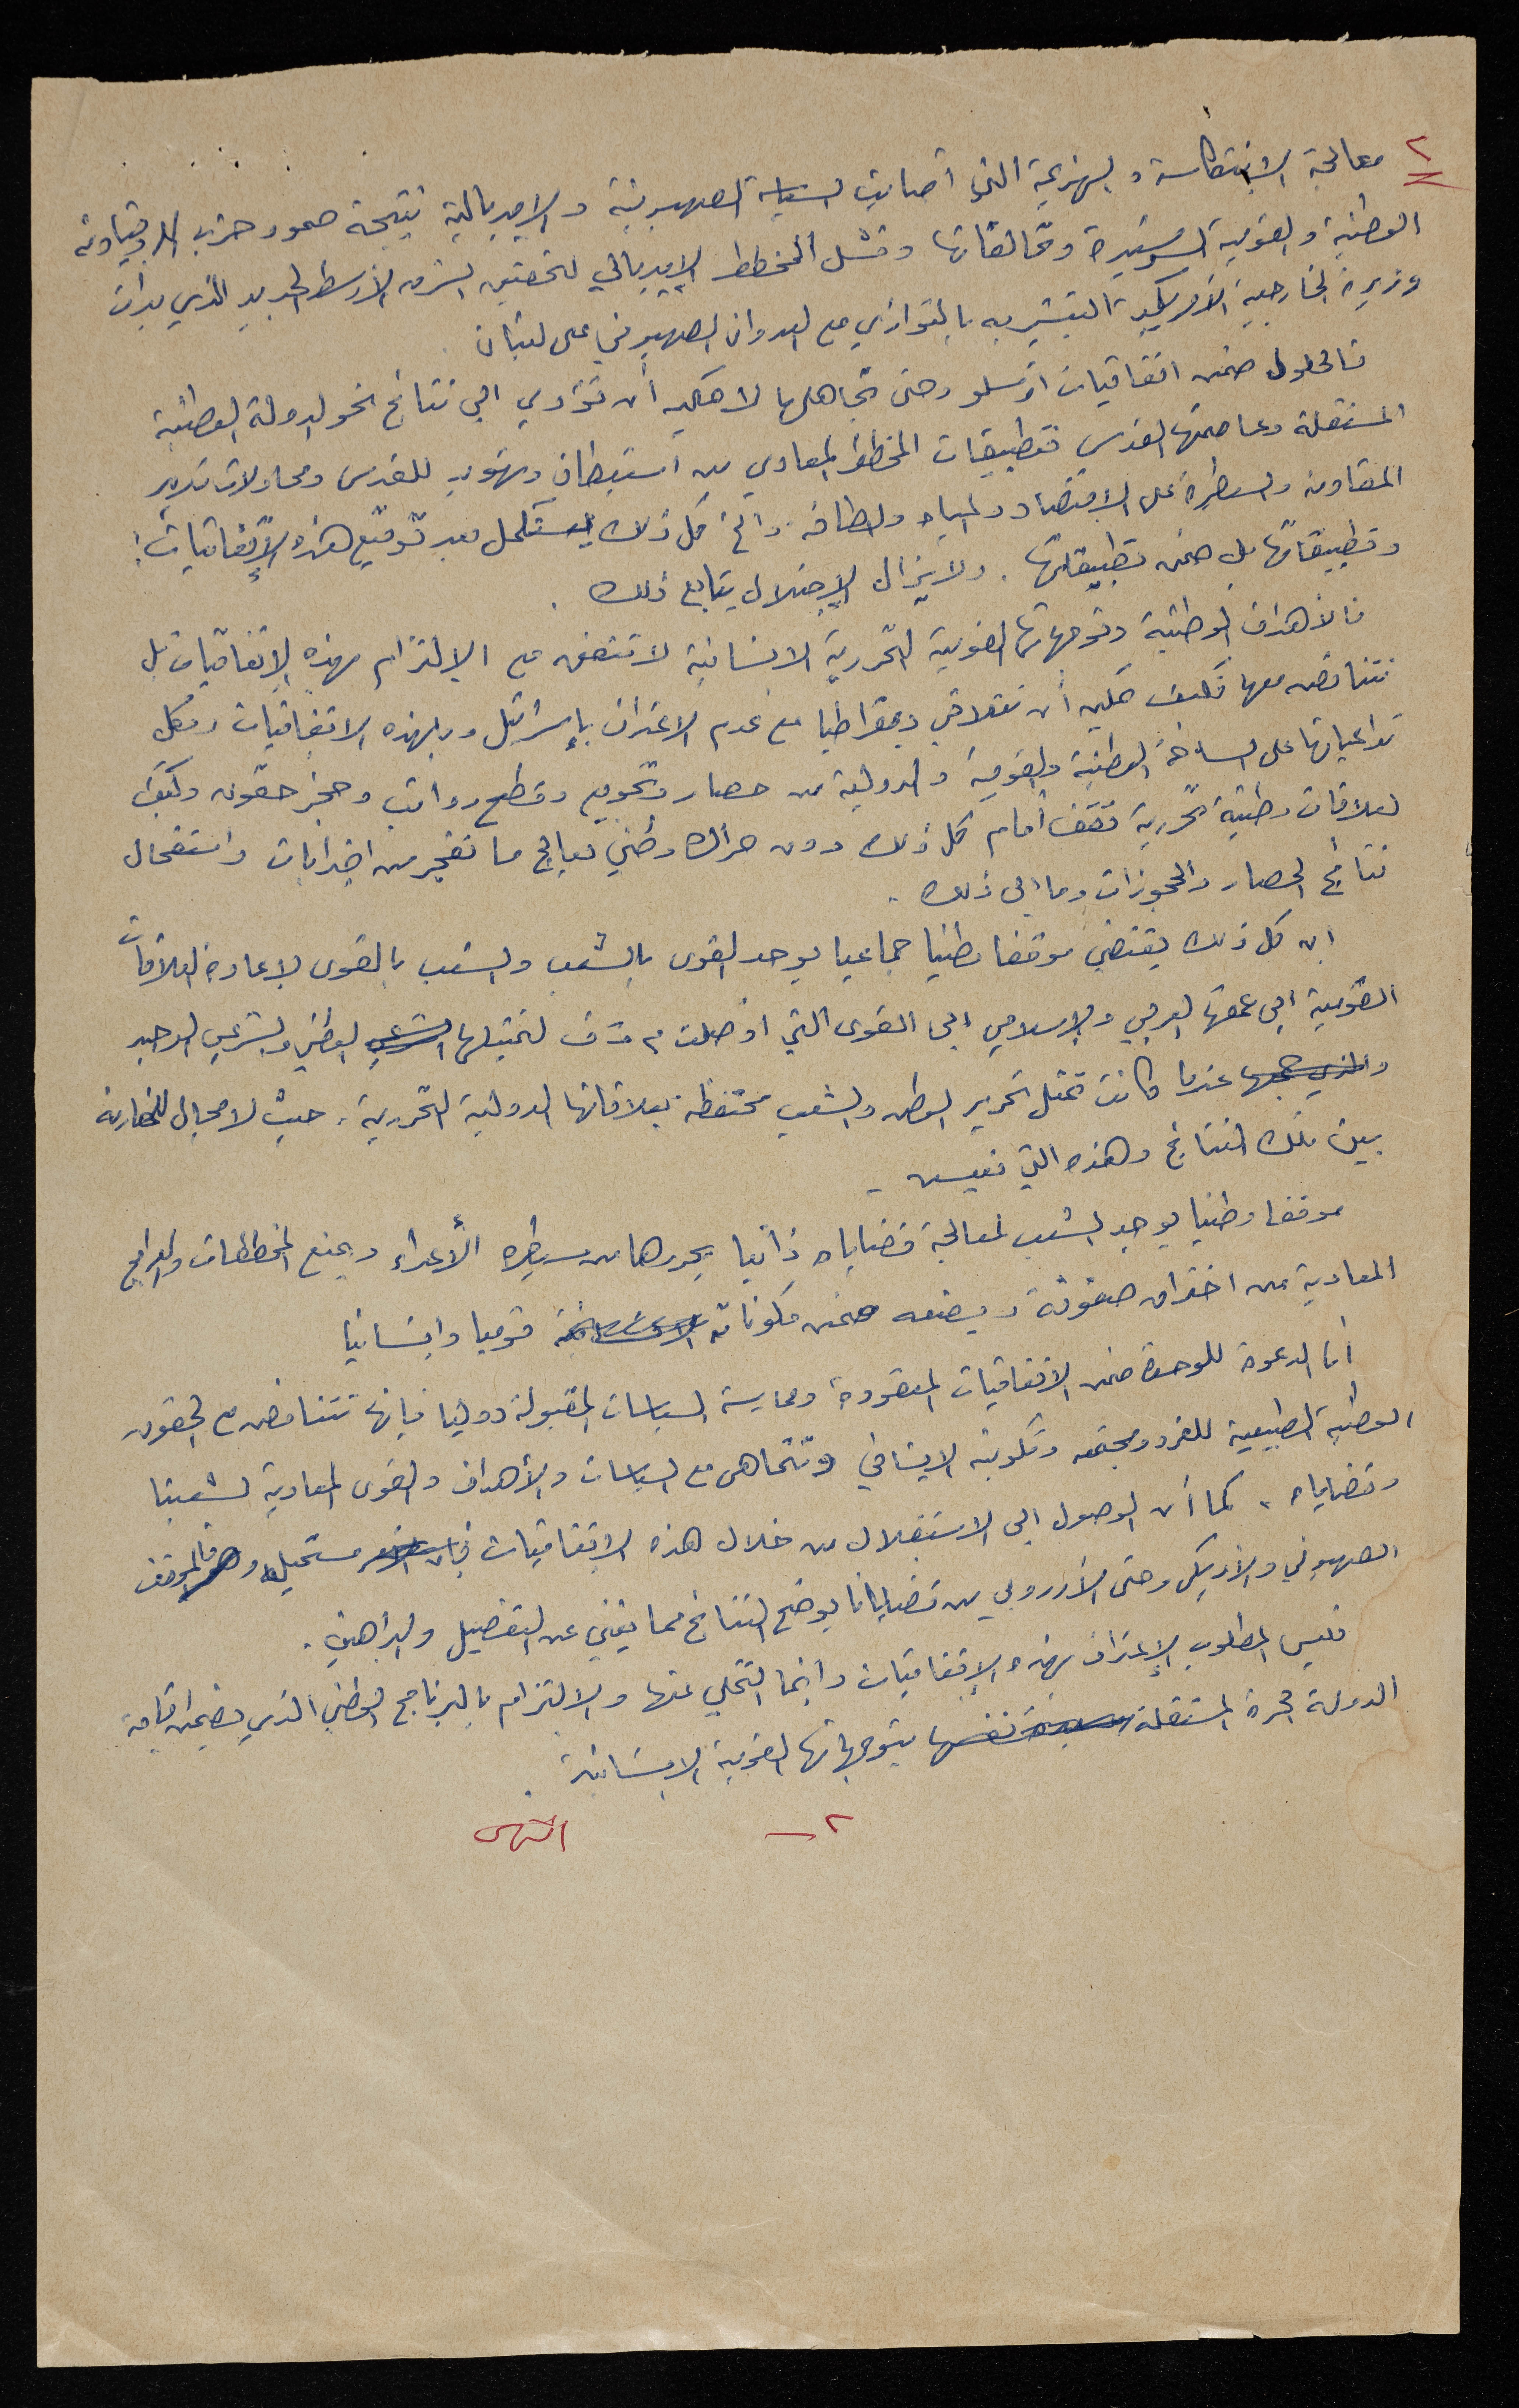 ٢
معالجة الانتكاسة والهزيمة التي أصابت السياسة الصهيونية والامبريالية نتيجة صمود حزب الله وقيادته
الوطنية والقومية المستنيرة وتحالفاتها وفشل المخطط الإمبريالي لتحقيق الشرق الأوسط الجديد الذي بدأت
وزيرة الخارجية الأمريكية التبشير به بالتوازي مع العدوان الصهيوني على لبنان
فالحلول ضمن اتفاقيات أوسلو وحتى تجاهلها لا يمكن أن تؤدي الى نتائج نحو الدولة الوطنية
المستقلة وعاصمتها القدس فتطبيقات المخطط المعادي من استيطان وتهويد للقدس ومحاولات تدمير
المقاومة والسيطرة على الاقتصاد والمياه والطاقة .. الخ كل ذلك يستكمل بعد توقيع هذه الإتفاقيات !
وتطبيقاتها بل ضمن تطبيقاتها . ولا يزال الإحتلال يتابع ذلك .
فالأهداف الوطنية وتوجهاتها القومية التحررية الانسانية لا تتفق مع الإلتزام بهذه الإتفاقيات بل
تتناقض معها فكيف يمكن أن نتلاقى ديمقراطيا مع عدم الاعتراف بإسرائيل وبهذه الاتفاقيات وبكل
تداعياتها على الساحة الوطنية والقومية والدولية من حصار وتجويع وقطع رواتب وحجز حقوق وكيف
لعلاقات وطنية تحررية تقف أمام كل ذلك دون حراك وطني يعالج ما تفجر من اضرابات واستفحال
نتائج الحصار والحجوزات وما الى ذلك .
إن كل ذلك يقتضي موقفا وطنيا جماعيا يوحد القوى بالشعب والشعب بالقوى لإعادة العلاقات
القومية إلى عمقها العربي والإسلامي إلى القوى التي أوصلت م ت ف لتمثيلها الشرعي الوطني والشرعي الوحيد
والذي عندما كانت تمثل تحرير الوطن والشعب محتفظة بعلاقاتها الدولية التحررية . حيث لا مجال للمقارنة
بين تلك النتائج وهذه التي نعيش .
موقفا وطنيا يوحد الشعب لمعالجة قضاياه ذاتيا يحررها من سيطرة الأعداء ويمنع المخططات والبرامج
المعادية من اختراق صفوفه ويضعه ضمن مكوناته قوميا وإنسانيا
أما الدعوة للوحدة ضمن الاتفاقيات المعقودة وممارسة السياسات المقبولة دوليا فإنها تتناقض مع الحقوق
الوطنية الطبيعية للفرد ومجتمعه وتكوينه الإنساني وتتماهى مع السياسات والأهداف والقوى المعادية لشعبنا
وقضاياه . كما أن الوصول الى الاستقلال من خلال هذه الإتفاقيات فإن مستحيل فالموقف
الصهيوني والأمريكي وحتى الأوروبي من قضايانا يوضح النتائج مما يغني عن التفصيل والبراهين .
فليس المطلوب الإعتراف بهذه الإتفاقيات وإنما التخلي عنها والالتزام بالبرنامج الوطني الذي يضمن إقامة
الدولة الحرة المستقلة بتوجهاتها القومية الانسانية .
٢ –
انتهى